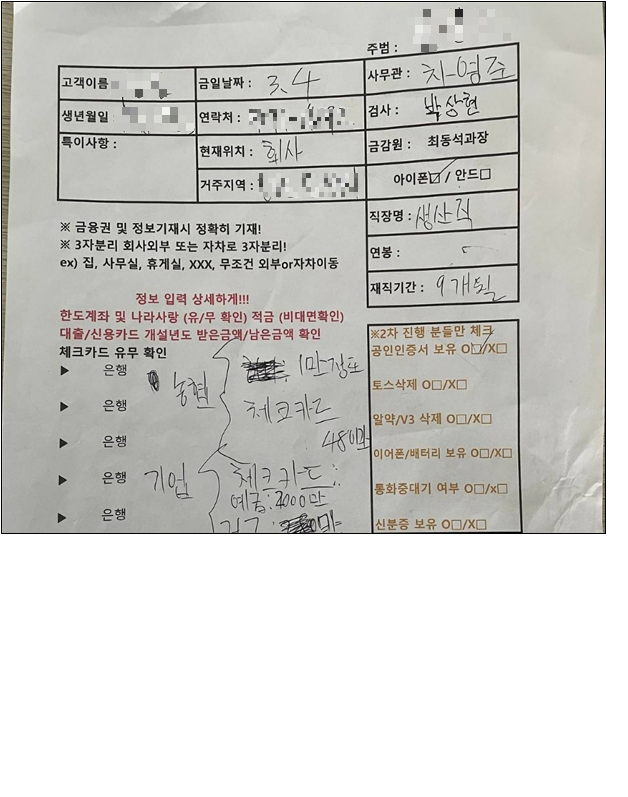 주범 :
고객이름 금일날짜 : 3.4 사무관 : 차-영주
생년월일 연락처 : 검사 : 박상현
특이사항 : 현재위치 : 회사 금감원 : 최동석과장
거주지역 : 아이폰☑ / 안드□
※ 금융권 및 정보기재시 정확히 기재! 직장명 : 생산직
※ 3자분리 회사외부 또는 자차로 3자분리!
ex) 집, 사무실, 휴게실, XXX, 무조건 외부or자차이동 연봉 :
재직기간 : 9개월
정보 입력 상세하게!!!
한도계좌 및 나라사랑 (유/무 확인) 적금 (비대면확인)
대출/신용카드 개설년도 받은금액/남은금액 확인
체크카드 유무 확인
▶ 은행 농협 1만정도
▶ 은행 체크카드
▶ 은행 48
▶ 은행 기업 체크카드 :
예금:2000만
▶ 은행
※2차 진행 분들만 체크
공인인증서 보유 O□/X☑
토스삭제 O□/X□
알약/V3 삭제 O□/X□
이어폰/배터리 보유 O□/X□
통화중대기 여부 O□/x□
신분증 보유 O□/X□